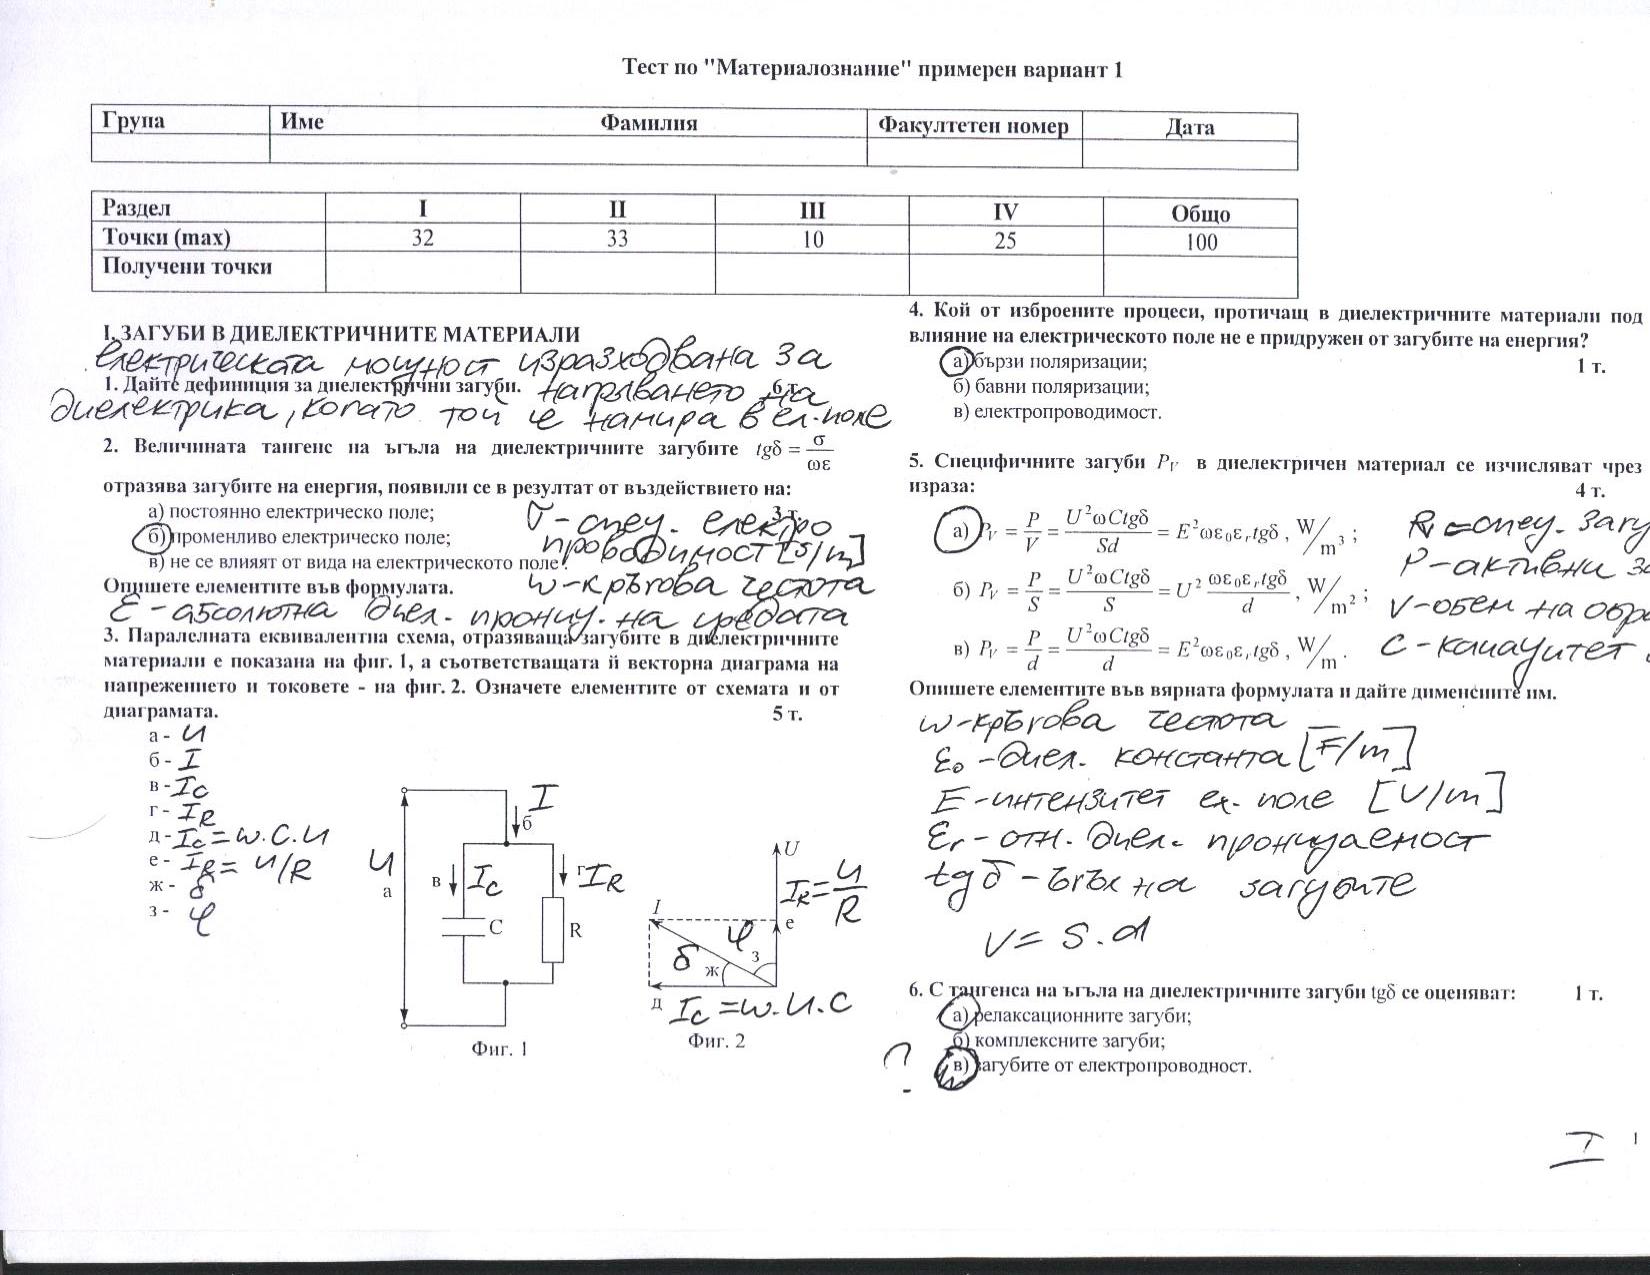 Тест по "Материалознание" примерен вариант 1
Група Име Фамилия Факултетен номер Дата
Раздел I II III IV Общо
Точки (max) 32 33 10 25 100
Получени точки
I. ЗАГУБИ В ДИЕЛЕКТРИЧНИТЕ МАТЕРИАЛИ
електрическата мощност изразходвана за
1. Дайте дефиниция за диелектрични загуби. 6 т.
нагряването на
диелектрика, когато той се намира в ел. поле
2. Величината тангенс на ъгъла на диелектричните загубите tgδ = σ/ωε
отразява загубите на енергия, появили се в резултат от въздействието на:
3 т.
а) постоянно електрическо поле;
б) променливо електрическо поле;
в) не се влияят от вида на електрическото поле.
σ - спец. електро
проводимост [S/m]
Опишете елементите във формулата.
ω - кръгова честота
ε - абсолютна диел. прониц. на средата
3. Паралелната еквивалентна схема, отразяваща загубите в диелектричните
материали е показана на фиг. 1, а съответстващата й векторна диаграма на
напрежението и токовете - на фиг. 2. Означете елементите от схемата и от
диаграмата. 5 т.
а - U
б - I
в - Ic
г - IR
д - Ic = ω.C.U
е - IR = U/R
ж - δ
з - φ
I
б
U
а
в Ic
г IR
C
R
Фиг. 1
U
IR = U/R
I
е
φ
δ
з
ж
д Ic = ω.U.C
Фиг. 2
4. Кой от изброените процеси, протичащ в диелектричните материали под
влияние на електрическото поле не е придружен от загубите на енергия?
а) бързи поляризации; 1 т.
б) бавни поляризации;
в) електропроводимост.
5. Специфичните загуби PV в диелектричен материал се изчисляват чрез
израза: 4 т.
а) PV = P/V = U²ωCtgδ/Sd = E²ωε₀εᵣtgδ , W/m³ ;
б) PV = P/S = U²ωCtgδ/S = U² ωε₀εᵣtgδ/d , W/m² ;
в) PV = P/d = U²ωCtgδ/d = E²ωε₀εᵣtgδ , W/m .
PV = спец. загу
P - активни за
V - обем на обра
C - капацитет
Опишете елементите във вярната формулата и дайте дименсиите им.
ω - кръгова честота
ε₀ - диел. константа [F/m]
E - интензитет ел. поле [V/m]
εr - отн. диел. проницаемост
tgδ - ъгъл на загубите
V = S.d
6. С тангенса на ъгъла на диелектричните загуби tgδ се оценяват: 1 т.
а) релаксационните загуби;
б) комплексните загуби;
? в) загубите от електропроводност.
I
1